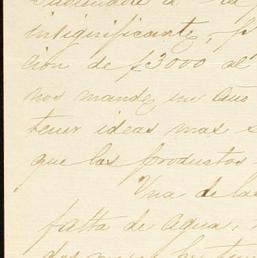 insignificante, p
cion de £3000 al
nos mande un caus
tener ideas mas s
que las productos
Una de las
falta de agua,